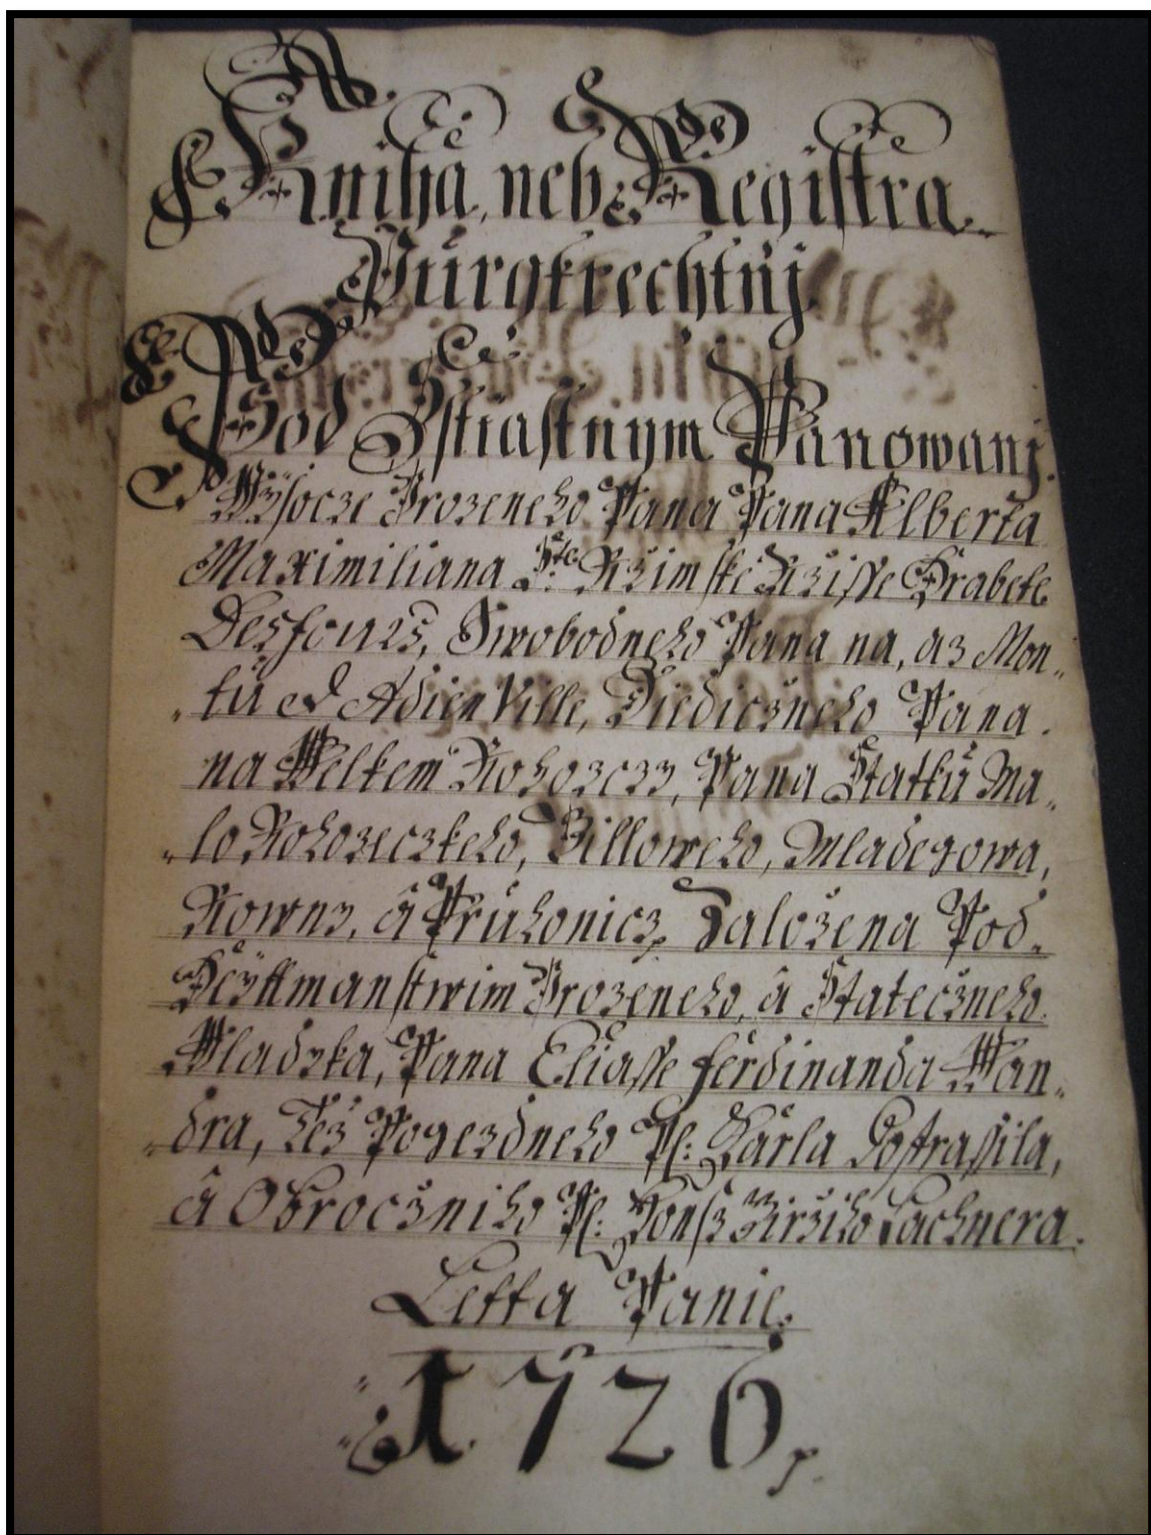 Kniha, neb Registra
Purgkrechtnj
Pod Sstiastnym Panowanj.
Wysocze Urozeneho Pana Pana Alberta
Maximiliana Rzimske Rzisse Hrabete
Desfours, Swobodneho Pana na, az Mon„
„tu et Adien Ville, Diedicžneho Pana
na Welkem Rohozczy, Pana Statku Ma„
„lo Rohozeczkeho, Billoweho, Mladegowa,
Rowny, a Pruhonicz, Založena Pod
Heyttmanstwim Urozeneho, a Statecžneho
Wladyka, Pana Eliasse Ferdinanda Wan„
„dra, Též Pogezdneho Pl: Karla
a Obrocžniho Pl: Giržiho Lachnera.
Letta Panie.
1726,